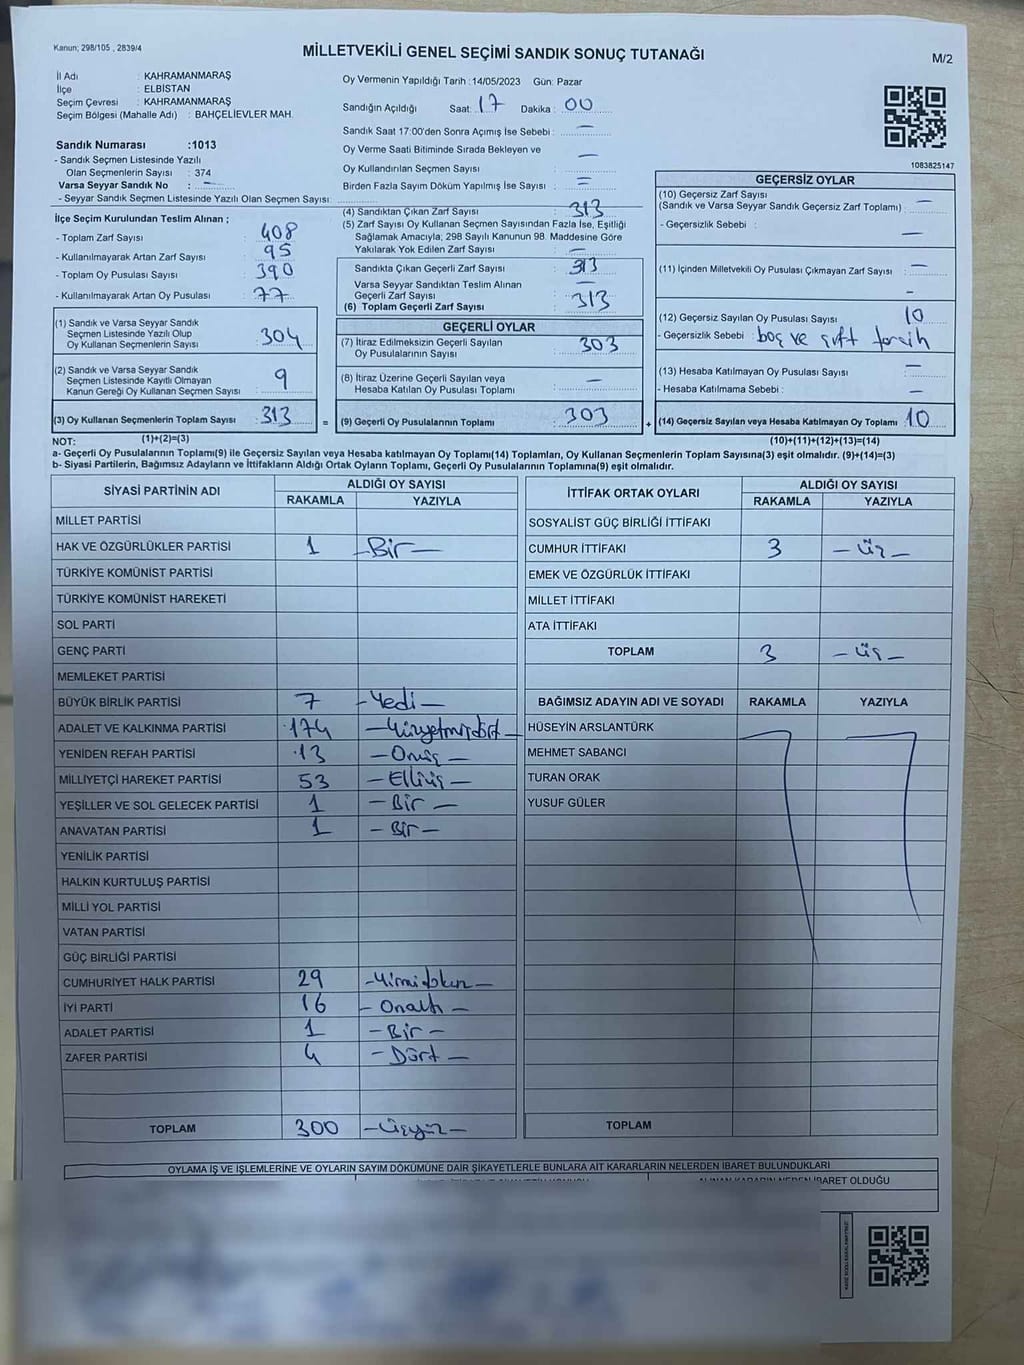 Kanun; 298/105 , 2839/4
MİLLETVEKİLİ GENEL SEÇİMİ SANDIK SONUÇ TUTANAĞI
M/2
İl Adı : KAHRAMANMARAŞ
İlçe : ELBİSTAN
Seçim Çevresi : KAHRAMANMARAŞ
Seçim Bölgesi (Mahalle Adı) : BAHÇELİEVLER MAH.
Sandık Numarası :1013
- Sandık Seçmen Listesinde Yazılı
Olan Seçmenlerin Sayısı : 374
Varsa Seyyar Sandık No : —
- Seyyar Sandık Seçmen Listesinde Yazılı Olan Seçmen Sayısı:
Oy Vermenin Yapıldığı Tarih :14/05/2023 Gün: Pazar
Sandığın Açıldığı Saat: 17 Dakika : 00
Sandık Saat 17:00'den Sonra Açımış İse Sebebi : —
Oy Verme Saati Bitiminde Sırada Bekleyen ve
Oy Kullandırılan Seçmen Sayısı : —
Birden Fazla Sayım Döküm Yapılmış İse Sayısı : =
1083825147
İlçe Seçim Kurulundan Teslim Alınan ;
- Toplam Zarf Sayısı : 408
- Kullanılmayarak Artan Zarf Sayısı : 95
- Toplam Oy Pusulası Sayısı : 390
- Kullanılmayarak Artan Oy Pusulası : 77
(1) Sandık ve Varsa Seyyar Sandık
Seçmen Listesinde Yazılı Olup
Oy Kullanan Seçmenlerin Sayısı : 304
(2) Sandık ve Varsa Seyyar Sandık
Seçmen Listesinde Kayıtlı Olmayan
Kanun Gereği Oy Kullanan Seçmen Sayısı : 9
(3) Oy Kullanan Seçmenlerin Toplam Sayısı : 313
(1)+(2)=(3)
(4) Sandıktan Çıkan Zarf Sayısı : 313
(5) Zarf Sayısı Oy Kullanan Seçmen Sayısından Fazla İse, Eşitliği
Sağlamak Amacıyla; 298 Sayılı Kanunun 98. Maddesine Göre
Yakılarak Yok Edilen Zarf Sayısı : —
Sandıkta Çıkan Geçerli Zarf Sayısı : 313
Varsa Seyyar Sandıktan Teslim Alınan
Geçerli Zarf Sayısı : —
(6) Toplam Geçerli Zarf Sayısı : 313
GEÇERLİ OYLAR
(7) İtiraz Edilmeksizin Geçerli Sayılan
Oy Pusulalarının Sayısı : 303
(8) İtiraz Üzerine Geçerli Sayılan veya
Hesaba Katılan Oy Pusulası Toplamı : —
= (9) Geçerli Oy Pusulalarının Toplamı : 303 +
GEÇERSİZ OYLAR
(10) Geçersiz Zarf Sayısı
(Sandık ve Varsa Seyyar Sandık Geçersiz Zarf Toplamı) : —
- Geçersizlik Sebebi : —
(11) İçinden Milletvekili Oy Pusulası Çıkmayan Zarf Sayısı : —
(12) Geçersiz Sayılan Oy Pusulası Sayısı : 10
- Geçersizlik Sebebi : boş ve çift tercih
(13) Hesaba Katılmayan Oy Pusulası Sayısı : —
- Hesaba Katılmama Sebebi : —
(14) Geçersiz Sayılan veya Hesaba Katılmayan Oy Toplamı : 10
(10)+(11)+(12)+(13)=(14)
NOT:
a- Geçerli Oy Pusulalarının Toplamı(9) ile Geçersiz Sayılan veya Hesaba katılmayan Oy Toplamı(14) Toplamları, Oy Kullanan Seçmenlerin Toplam Sayısına(3) eşit olmalıdır. (9)+(14)=(3)
b- Siyasi Partilerin, Bağımsız Adayların ve İttifakların Aldığı Ortak Oyların Toplamı, Geçerli Oy Pusulalarının Toplamına(9) eşit olmalıdır.
SİYASİ PARTİNİN ADI ALDIĞI OY SAYISI
RAKAMLA YAZIYLA
MİLLET PARTİSİ
HAK VE ÖZGÜRLÜKLER PARTİSİ 1 -Bir-
TÜRKİYE KOMÜNİST PARTİSİ
TÜRKİYE KOMÜNİST HAREKETİ
SOL PARTİ
GENÇ PARTİ
MEMLEKET PARTİSİ
BÜYÜK BİRLİK PARTİSİ 7 -Yedi-
ADALET VE KALKINMA PARTİSİ 174 -Yüzyetmişdört-
YENİDEN REFAH PARTİSİ 13 -Onüç-
MİLLİYETÇİ HAREKET PARTİSİ 53 -Elliüç-
YEŞİLLER VE SOL GELECEK PARTİSİ 1 -Bir-
ANAVATAN PARTİSİ 1 -Bir-
YENİLİK PARTİSİ
HALKIN KURTULUŞ PARTİSİ
MİLLİ YOL PARTİSİ
VATAN PARTİSİ
GÜÇ BİRLİĞİ PARTİSİ
CUMHURİYET HALK PARTİSİ 29 -Yirmidokuz-
İYİ PARTİ 16 -Onaltı-
ADALET PARTİSİ 1 -Bir-
ZAFER PARTİSİ 4 -Dört-
TOPLAM 300 -Üçyüz-
İTTİFAK ORTAK OYLARI ALDIĞI OY SAYISI
RAKAMLA YAZIYLA
SOSYALİST GÜÇ BİRLİĞİ İTTİFAKI
CUMHUR İTTİFAKI 3 -Üç-
EMEK VE ÖZGÜRLÜK İTTİFAKI
MİLLET İTTİFAKI
ATA İTTİFAKI
TOPLAM 3 -Üç-
BAĞIMSIZ ADAYIN ADI VE SOYADI RAKAMLA YAZIYLA
HÜSEYİN ARSLANTÜRK
MEHMET SABANCI
TURAN ORAK
YUSUF GÜLER
TOPLAM
OYLAMA İŞ VE İŞLEMLERİNE VE OYLARIN SAYIM DÖKÜMÜNE DAİR ŞİKAYETLERLE BUNLARA AİT KARARLARIN NELERDEN İBARET BULUNDUKLARI
ALINAN KARARIN NEDEN İBARET OLDUĞU